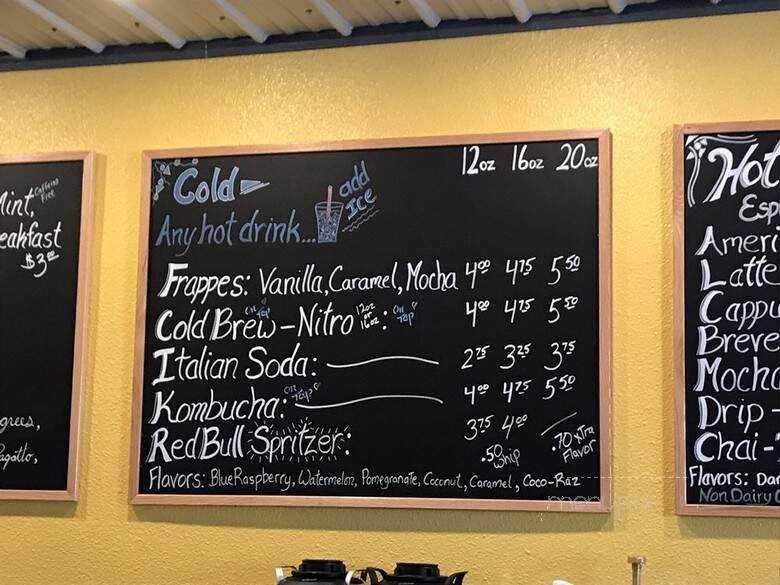 Mint, Caffeine Free
eakfast
$3.00
grees,
Cold
12oz 16oz 20oz
add Ice
Any hot drink...
Frappes: Vanilla, Caramel, Mocha 4.00 4.75 5.50
Cold Brew - Nitro 12oz or 16oz: On Tap 4.00 4.75 5.50
On Tap
Italian Soda: 2.75 3.25 3.75
Kombucha: On Tap 4.00 4.75 5.50
RedBull Spritzer: 3.75 4.00
.50 Whip
.70 xtra Flavor
Flavors: Blue Raspberry, Watermelon, Pomegranate, Coconut, Caramel, Coco-Raz
Hot
Esp
Ameri
Latte
Cappu
Breve
Mocha
Drip -
Chai -
Flavors: Da
Non Dairy